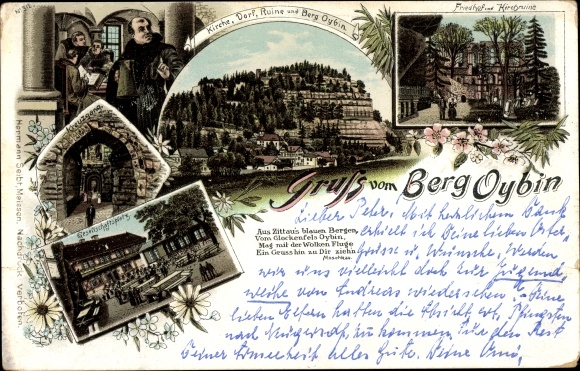 Kirche, Dorf, Ruine und Berg Oybin.
Friedhof und Kirchruine
Gesellschaftsplatz
Gruss vom Berg Oybin
Aus Zittau's blauen Bergen,
Vom Glockenfels Oybin,
Mag mit der Wolken Fluge
Ein Gruss hin zu Dir ziehn
Moschkau
Herrmann Seibt, Meissen. Nachdruck Verboten.
Lieber Peter, Mit herzlichem Dank
erhielt ich Deine lieben Oster-
grüsse u. Wünsche, Werden
wir uns vielleicht doch zur Jugend
weihe von Andreas wiedersehen? Deine
lieben Eltern hatten die Absicht, vor Pfingsten
nach zu kommen. Für den Rest
Deiner Armeezeit Alles Gute. Deine Omi.